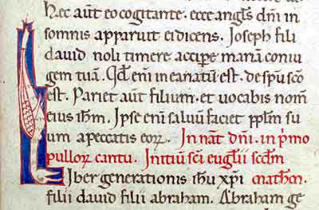 hec aut̄ eo cogitante. ecce angl̄s dn̄i in
somnis apparuit ei dicens. Joseph fili
david noli timere accip̄e mariam coniu
gem tuā. Qd̄ eni in ea natū est. de spū sc̄o
est. Pariet aut̄ filium. et vocabis nom̄
eius ih̄m. Ipse eni saluū faciet pp̄lm su
um a peccatis eoꝝ. In nat̄ dn̄i. in p̄mo
pulloꝝ cantu. Initiū sc̄i euglii scd̄m
Liber generationis ih̄u xp̄i math̄m.
filii david filii abraham. Abraham ge